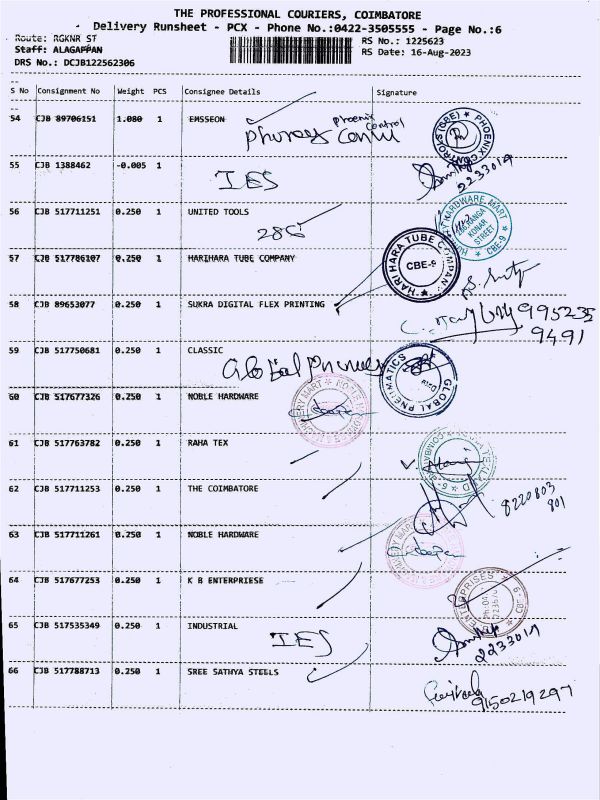 THE PROFESSIONAL COURIERS, COIMBATORE
Delivery Runsheet - PCX - Phone No.:0422-3505555 - Page No.:6
Route: RGKNR ST
RS No.: 1225623
Staff: ALAGAPPAN
RS Date: 16-Aug-2023
DRS No.: DCJB122562306
S No Consignment No Weight PCS Consignee Details Signature
54 CJB 89706151 1.080 1 EMSSEON
phoenix
control
PHOENIX CONTROLS (CBE)
55 CJB 1388462 -0.005 1
IES
2233019
56 CJB 517711251 0.250 1 UNITED TOOLS
286
HARDWARE MART
KONAR
STREET
CBE-9
57 CJB 517786107 0.250 1 HARIHARA TUBE COMPANY
HARI HARA TUBE COMPANY
CBE-9
58 CJB 89653077 0.250 1 SUKRA DIGITAL FLEX PRINTING
995235
9491
59 CJB 517750681 0.250 1 CLASSIC
Global
GLOBAL PNEUMATICS
60 CJB 517677326 0.250 1 NOBLE HARDWARE
61 CJB 517763782 0.250 1 RAHA TEX
62 CJB 517711253 0.250 1 THE COIMBATORE
8220803
801
63 CJB 517711261 0.250 1 NOBLE HARDWARE
64 CJB 517677253 0.250 1 K B ENTERPRIESE
ENTERPRISES
65 CJB 517535349 0.250 1 INDUSTRIAL
IES
2233019
66 CJB 517788713 0.250 1 SREE SATHYA STEELS
9150219297